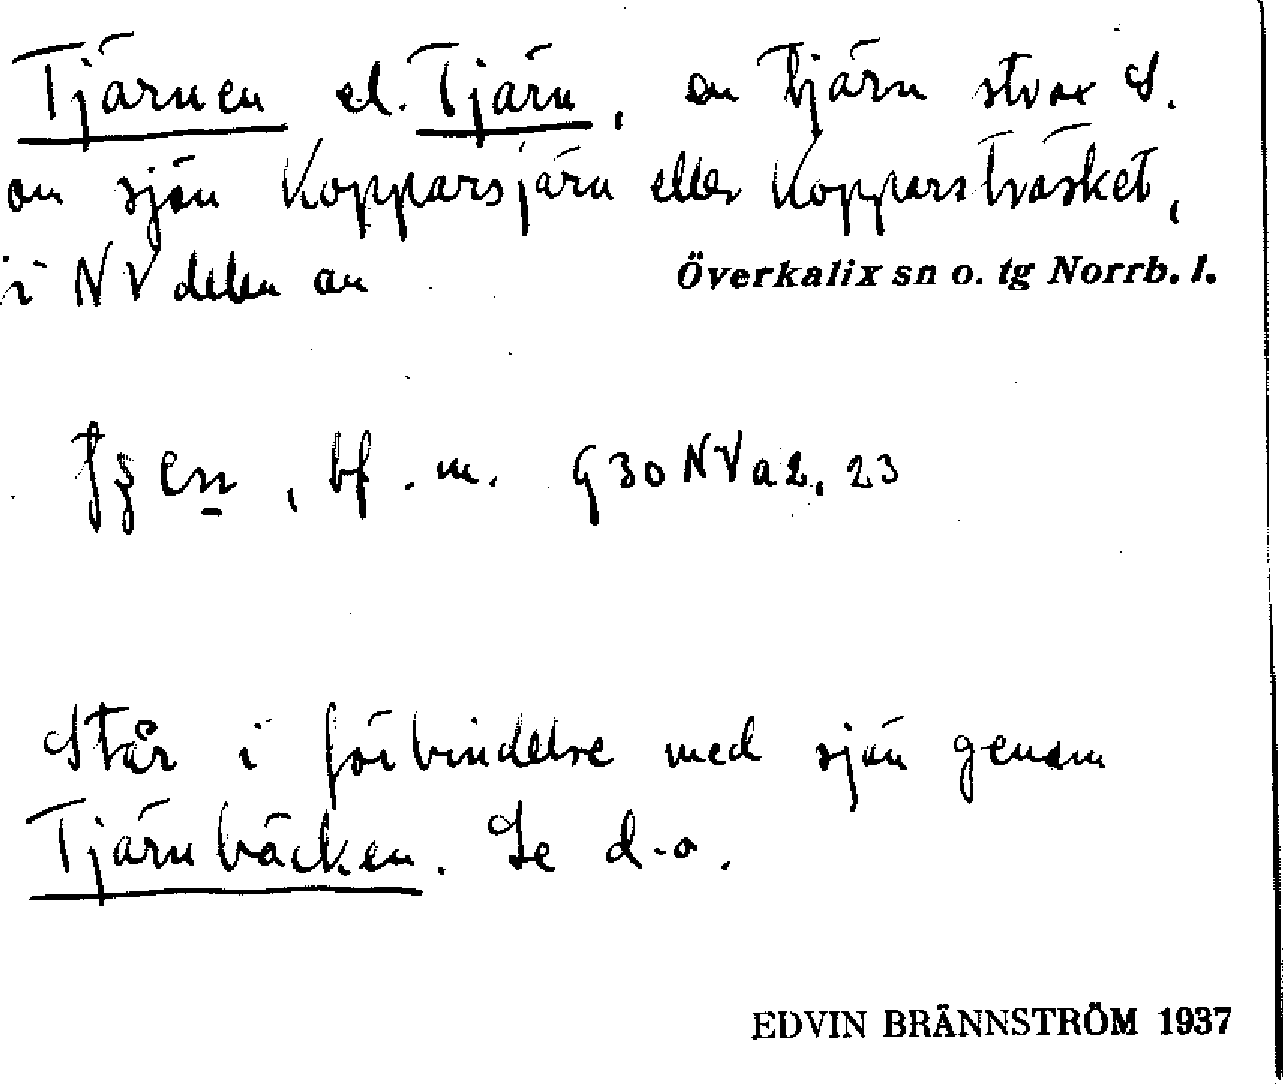 Tjärnen el. Tjärn, en tjärn strax S.
om sjön Kopparsjärn eller Kopparsträsket,
i NV delen av Överkalix sn o. tg Norrb. l.
, bf. m. G 30 NV a 2, 23
Står i förbindelse med sjön genom
Tjärnbäcken. Se d.o.
EDVIN BRÄNNSTRÖM 1937